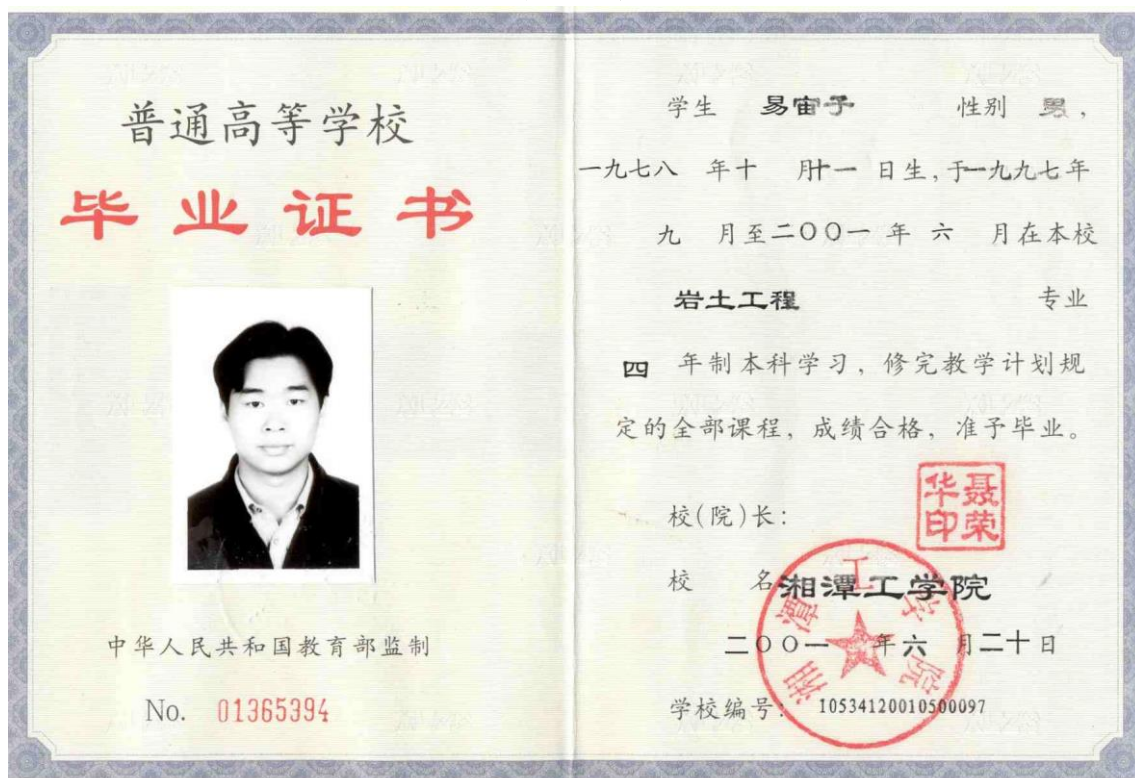 普通高等学校
毕业证书
中华人民共和国教育部监制
No. 01365394
学生 易宙子 性别 男，
一九七八 年十 月十一 日生，于一九九七年
九 月至二〇〇一 年 六 月在本校
岩土工程 专业
四 年制本科学习，修完教学计划规
定的全部课程，成绩合格，准予毕业。
校(院)长：
聂荣华印
校 名 湘潭工学院
二〇〇一 年六 月二十日
学校编号： 10534120010500097
湘潭工学院